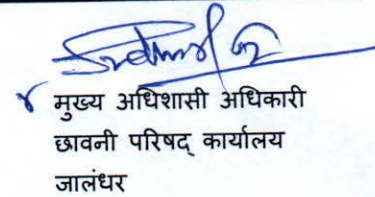 मुख्य अधिशासी अधिकारी
छावनी परिषद् कार्यालय
जालंधर